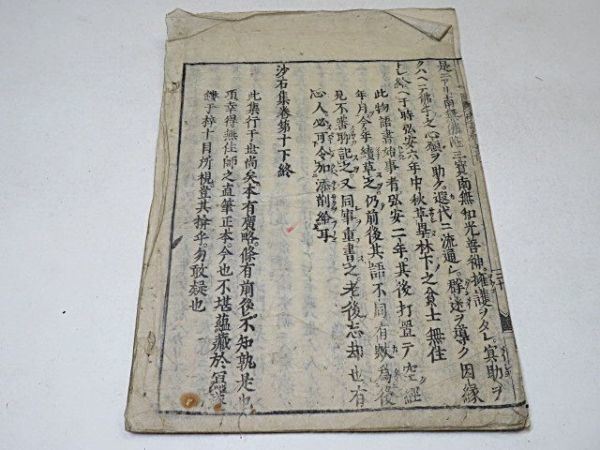 是ニアリ南無三寶南無和光善神擁護ヲタレ冥助ヲ
クハヘテ佛子之心願ヲ助ケ遐代ニ流通シ群迷ヲ導ク因縁
シ給ヘ于時弘安六年中秋草畢林下ノ貧士無住
此物語書始事者弘安二年其後打置テ空經
年月今年續草之仍前後其語不同有歟為後
見不審聊記之又同事重書之老後忘却也有
心人必可令加添削給耳
沙石集巻第十下終
此集行于世尚矣本有廣略條有前後不知孰是也
項幸得無住師之直筆正本今也不堪蘊藏於
鏤于梓十目所視豈其揜乎勿敢疑也